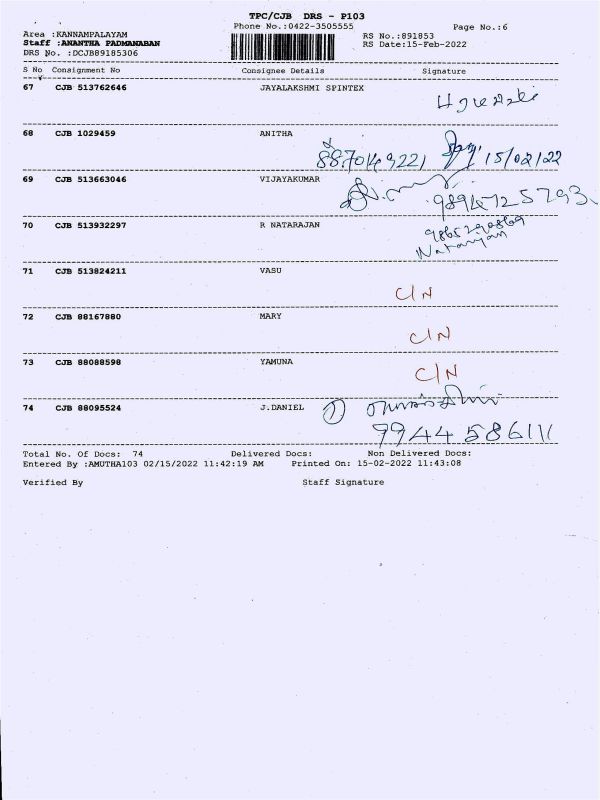 TPC/CJB DRS - P103
Phone No.:0422-3505555 Page No.:6
Area :KANNAMPALAYAM RS No.:891853
Staff :ANANTHA PADMANABAN RS Date:15-Feb-2022
DRS No. :DCJB89185306
S No Consignment No Consignee Details Signature
67 CJB 513762646 JAYALAKSHMI SPINTEX
68 CJB 1029459 ANITHA
8870149221 15/02/22
69 CJB 513663046 VIJAYAKUMAR
9894725793
70 CJB 513932297 R NATARAJAN
9865290869
Natarajan
71 CJB 513824211 VASU
C/N
72 CJB 88167880 MARY
C/N
73 CJB 88088598 YAMUNA
C/N
74 CJB 88095524 J.DANIEL
9944586111
Total No. Of Docs: 74 Delivered Docs: Non Delivered Docs:
Entered By :AMUTHA103 02/15/2022 11:42:19 AM Printed On: 15-02-2022 11:43:08
Verified By Staff Signature